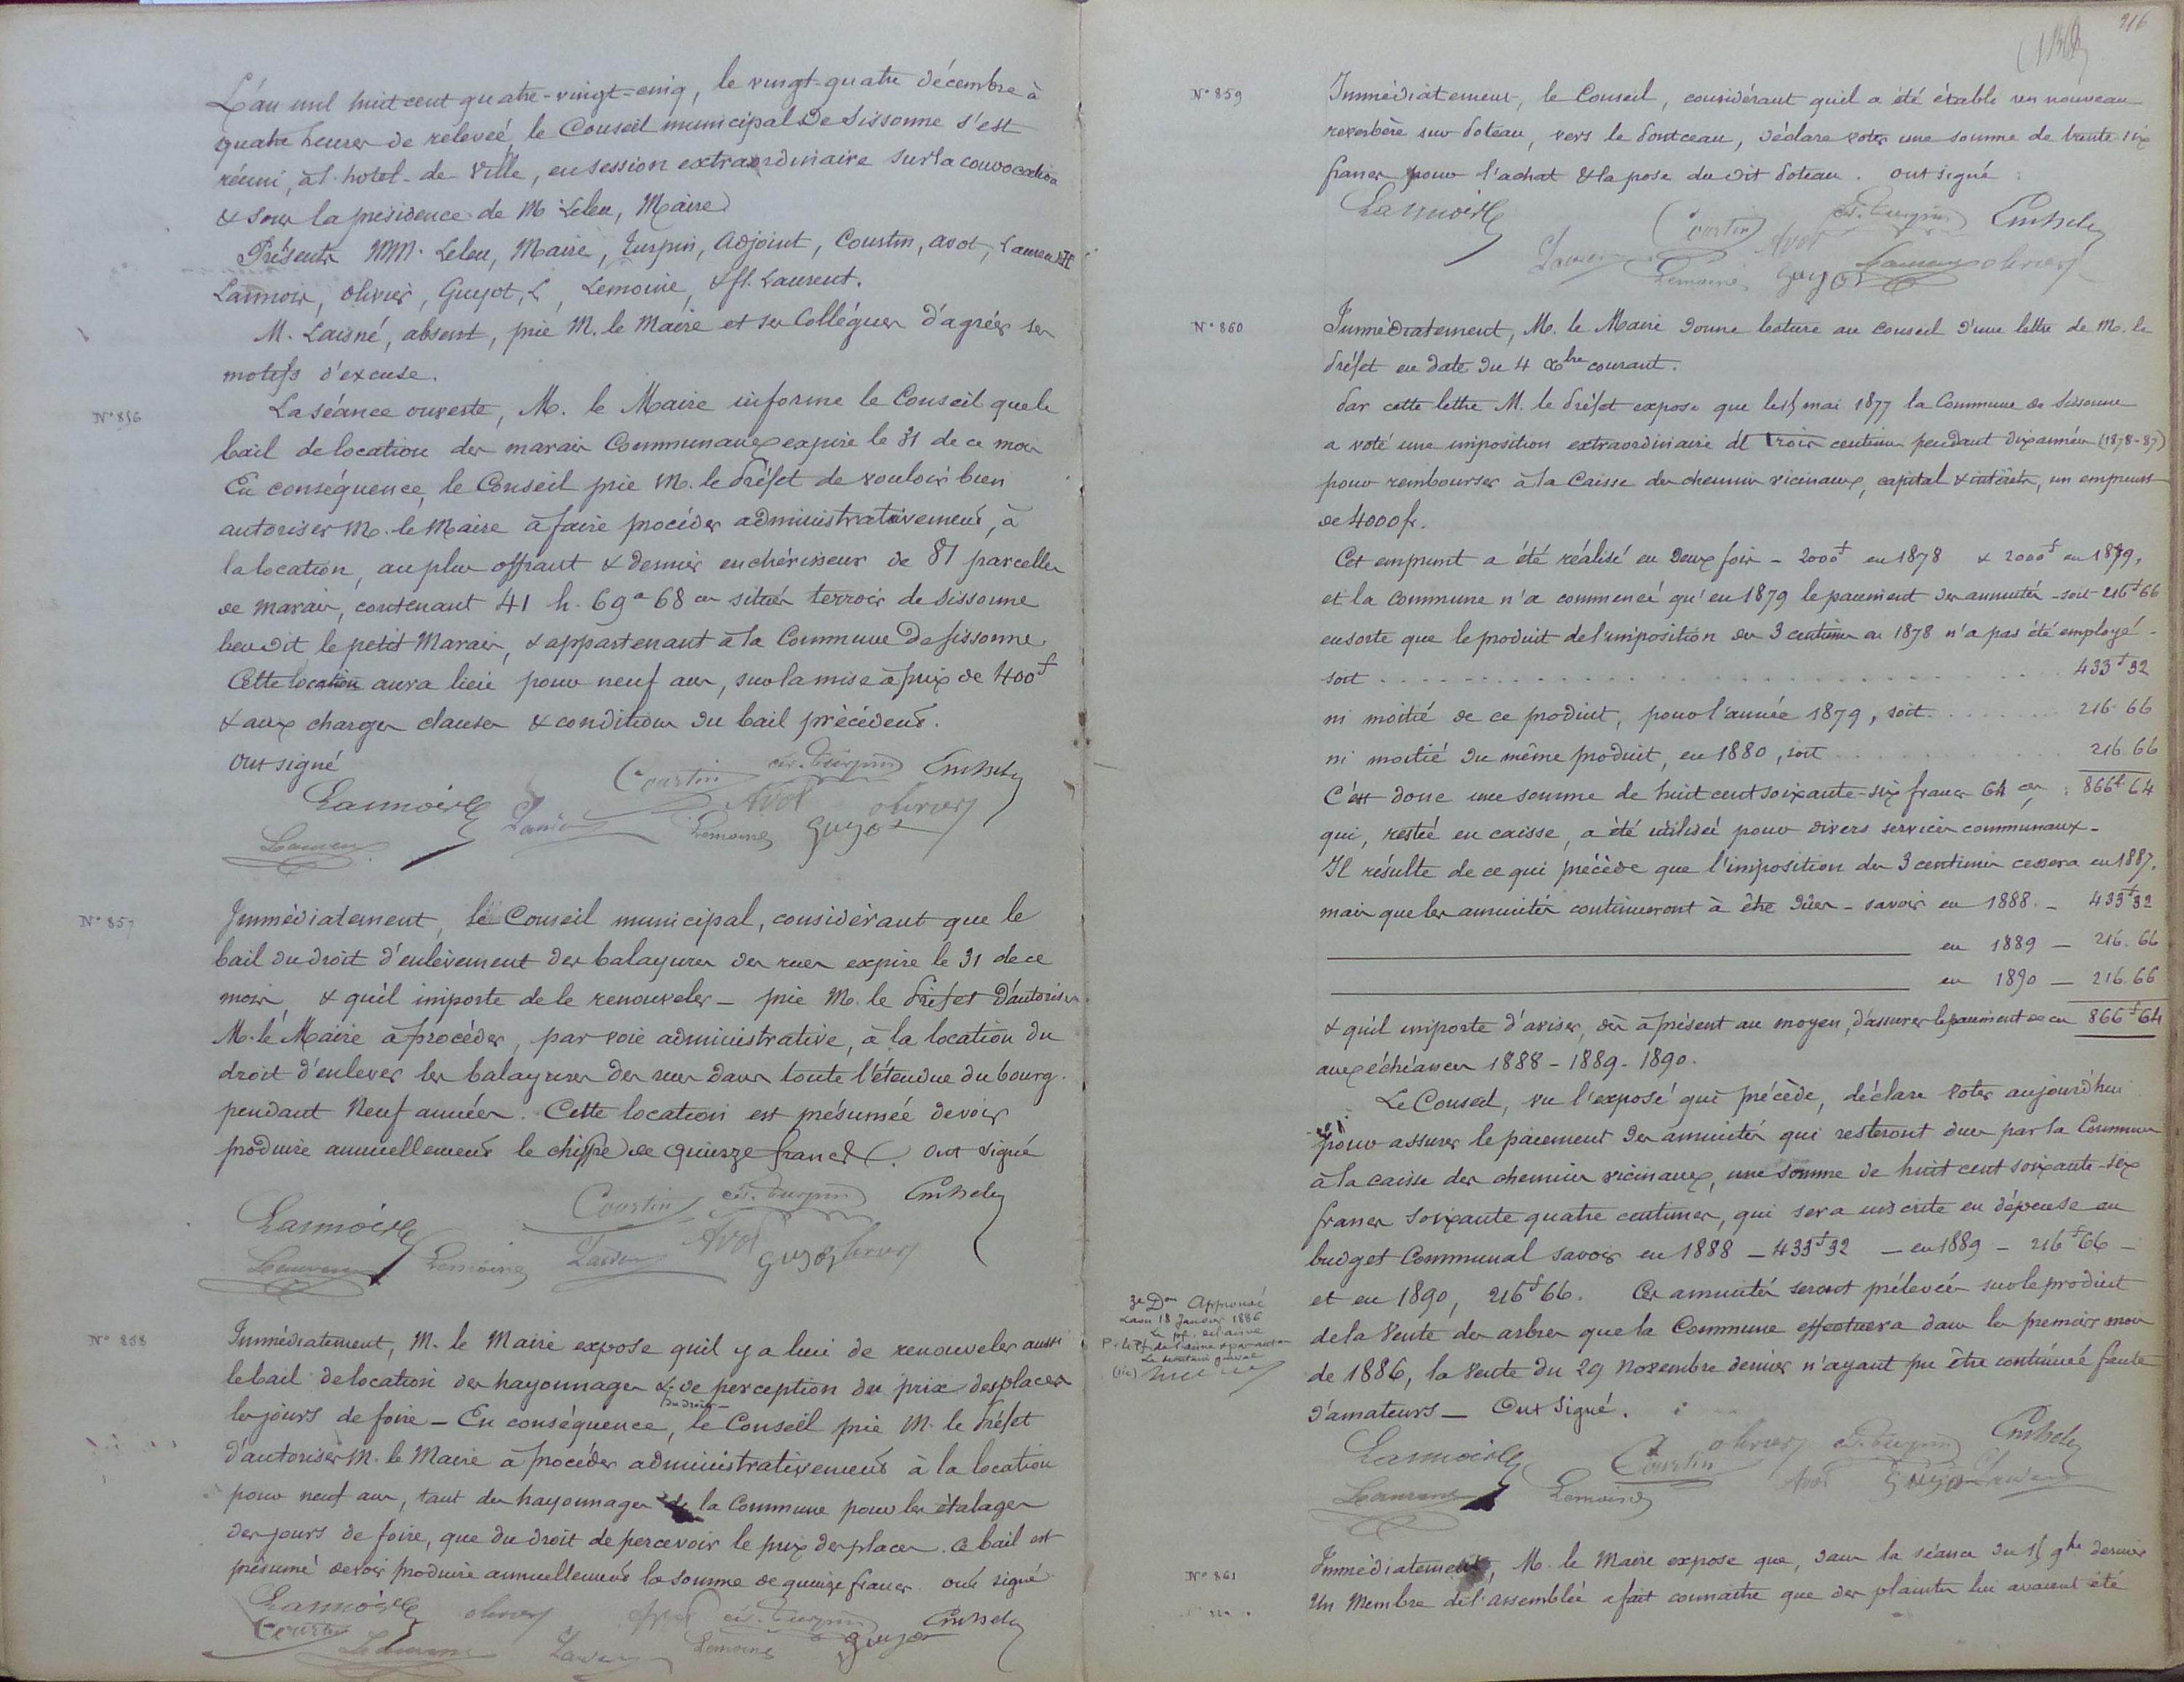 L'an mil huit cent quatre-vingt-cinq, le vingt-quatre décembre à
quatre heures de relevée, le Conseil municipal de Sissonne s'est
réuni, à l'hotel-de-Ville, en session extraordinaire sur la convocation
& sous la présidence de M. Leleu, Maire
Présents MM. Leleu, Maire, Turpin, Adjoint, Courtin, Avot, Laurent
Lannois, Olivier, Guyot, L, Lemoine, & fl. Laurent.
M. Laisné, absent, prie M. le Maire et ses Collégues d'agréer ses
motifs d'excuse.
N° 856
La séance ouverte, M. le Maire informe le Conseil que le
bail de location des marais Communaux expire le 31 de ce mois
En conséquence, le Conseil prie M. le Préfet de vouloir bien
autoriser M. le Maire à faire procéder administrativement, à
la location, au plus offrant & dernier enchérisseur de 81 parcelles
de marais, contenant 41 h. 69 a 68 ca situés terroir de Sissonne
lieu dit le petit Marais, & appartenant à la Commune de Sissonne
Cette location aura lieu pour neuf ans, sur la mise à prix de 400 f
& aux charges clauses & conditions du bail précédent.
Ont signé
Lannois Courtin Turpin
Avot Olivier
Laurent Lemoine Guyot
N° 857
Immédiatement, le Conseil municipal, considérant que le
bail du droit d'enlèvement des balayures des rues expire le 31 de ce
mois, & qu'il importe de le renouveler _ prie M. le Préfet d'autoriser
M. le Maire à procéder, par voie administrative, à la location du
droit d'enlever les balayures des rues dans toute l'étendue du bourg.
pendant Neuf années. Cette location est présumée devoir
produire annuellement le chiffre de quinze francs. Ont signé
Lannois Courtin Turpin
Avot
Laurent Lemoine Guyot Olivier
N° 858
Immédiatement, M. le Maire expose qu'il y a lieu de renouveler aussi
le bail de location des hayonnages & de perception du prix des places
du droit
les jours de foire _ En conséquence, le Conseil prie M. le Préfet
d'autoriser M. le Maire à procéder administrativement à la location
pour neuf ans, tant des hayonnages de la Commune pour les étalages
des jours de foire, que du droit de percevoir le prix des places. Ce bail est
présumé devoir produire annuellement la somme de quinze francs. ont signé
Lannois Olivier Avot Turpin
Courtin Laurent Lemoine Guyot
216
N° 859
Immédiatement, le Conseil, considérant qu'il a été établi un nouveau
reverbère sur Poteau, vers le Pontceau, déclare voter une somme de trente six
francs pour l'achat & la pose du dit Poteau. ont signé
Lannois Courtin Turpin
Avot
Lemoine Guyot Laurent Olivier
N° 860
Immédiatement, M. le Maire donne lecture au Conseil d'une lettre de M. le
Préfet en date du 4 Xbre courant.
Par cette lettre M. le Préfet expose que le 15 mai 1877 la Commune de Sissonne
a voté une imposition extraordinaire de trois centimes pendant dix années (1878-87)
pour rembourser à la Caisse des chemins vicinaux, capital & intérêts, un emprunt
de 4000 fr.
Cet emprunt a été réalisé en deux fois - 2000 f en 1878 & 2000 f en 1879,
et la Commune n'a commencé qu'en 1879 le paiement des annuités - soit 216 f 66
ensorte que le produit de l'imposition des 3 centimes en 1878 n'a pas été employé -
soit . . . . . . . . . . 433 f 32
ni moitié de ce produit, pour l'année 1879, soit . . . . . . 216.66
ni moitié du même produit, en 1880, soit . . . . . . 216.66
C'est donc une somme de huit cent soixante-six francs 64 ces : 866 f 64
qui, restée en caisse, a été utilisée pour divers services communaux -
Il résulte de ce qui précède que l'imposition des 3 centimes cessera en 1887,
mais que les annuités continueront à être dûes - savoir en 1888 - 433 f 32
en 1889 — 216.66
en 1890 — 216.66
& qu'il importe d'aviser, dès à présent au moyen, d'assurer le paiement de ces 866 f 64
aux échéances 1888 - 1889 - 1890.
Le Conseil, vu l'exposé qui précède, déclare voter aujourd'hui
pour assurer le paiement des annuités qui resteront dues par la Commune
à la caisse des chemins vicinaux, une somme de huit cent soixante-six
francs soixante quatre centimes, qui sera inscrite en dépense au
budget Communal savoir en 1888 - 433 f 32 - en 1889 - 216 f 66 -
et en 1890, 216 f 66. Ces annuités seront prélevées sur le produit
de la Vente des arbres que la Commune effectuera dans les premiers mois
de 1886, la Vente du 29 Novembre dernier n'ayant pu être continuée faute
d'amateurs _ Ont Signé.
3e Don Approuvé
Laon 18 Janvier 1886
Le secrétaire général
Lannois Courtin Olivier Turpin
Laurent Lemoine Avot Guyot
N° 861
Immédiatement, M. le Maire expose que, dans la séance du 15 9bre dernier
Un Membre de l'assemblée a fait connaitre que des plaintes lui avaient été